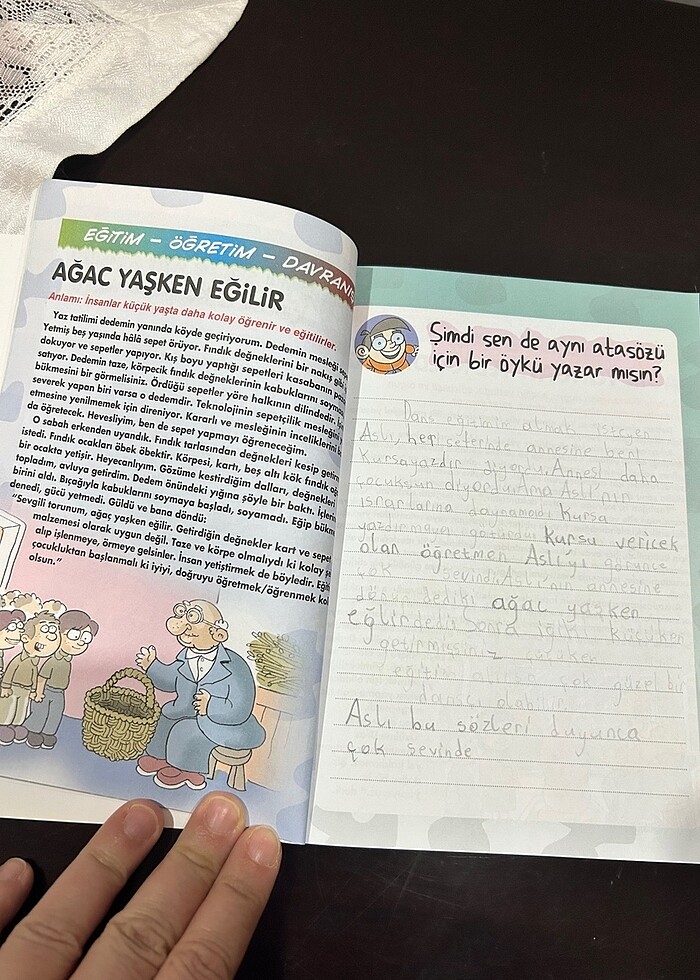 EĞİTİM - ÖĞRETİM - DAVRANIŞ
AĞAÇ YAŞKEN EĞİLİR
Anlamı: İnsanlar küçük yaşta daha kolay öğrenir ve eğitilirler.
Yaz tatilimi dedemin yanında köyde geçiriyorum. Dedemin mesleği
Yetmiş beş yaşında hâlâ sepet örüyor. Fındık değneklerini bir nakış gibi
dokuyor ve sepetler yapıyor. Kış boyu yaptığı sepetleri kasabanın
satıyor. Dedemin taze, körpecik fındık değneklerinin kabuklarını
bükmesini bir görmelisiniz. Ördüğü sepetler yöre halkının dilindedir.
severek yapan biri varsa o dedemdir. Teknolojinin sepetçilik mesleğini
etmesine yenilmemek için direniyor. Kararlı ve mesleğinin inceliklerini
da öğretecek. Hevesliyim, ben de sepet yapmayı öğreneceğim.
O sabah erkenden uyandık. Fındık tarlasından değnekleri kesip
istedi. Fındık ocakları öbek öbektir. Körpesi, kartı, beş altı kök fındık
bir ocakta yetişir. Heyecanlıyım. Gözüme kestirdiğim dalları, değnekleri
topladım, avluya getirdim. Dedem önündeki yığına şöyle bir baktı.
birini aldı. Bıçağıyla kabuklarını soymaya başladı, soyamadı. Eğip
denedi, gücü yetmedi. Güldü ve bana döndü:
"Sevgili torunum, ağaç yaşken eğilir. Getirdiğin değnekler kart ve sepet
malzemesi olarak uygun değil. Taze ve körpe olmalıydı ki kolay
alıp işlenmeye, örmeye gelsinler. İnsan yetiştirmek de böyledir.
çocukluktan başlanmalı ki iyiyi, doğruyu öğretmek/öğrenmek
olsun."
Şimdi sen de aynı atasözü
için bir öykü yazar mısın?
Dans eğitimini almak isteyen
Aslı, her seferinde annesine beni
kursa yazdır diyordu. Annesi daha
çocuksun diyordu. Ama Aslı'nın
ısrarlarına dayanamadı kursa
yazdırmaya götürdü kursu vericek
olan öğretmen Aslı'yı görünce
çok sevindi. Aslı'nın annesine
dönüp dediki ağaç yaşken
eğlir dedi. Sonra iğiki küçükken
getirmişsiniz
eğitim alırsa çok güzel bir
dansçı olabilir.
Aslı bu sözleri duyunca
çok sevinde